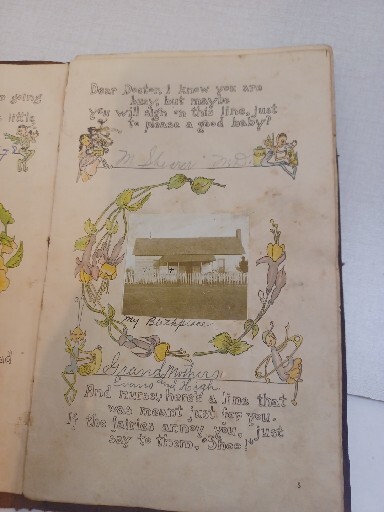 going
little
Dear Doctor, I know you are
busy, but maybe
you will sign on this line, just
to please a good baby?
M.D.
My Birthplace
Grand Mothers
Evans and High
And nurse, here's a line that
was meant just for you.
If the fairies annoy you, just
say to them, "Shoo!"